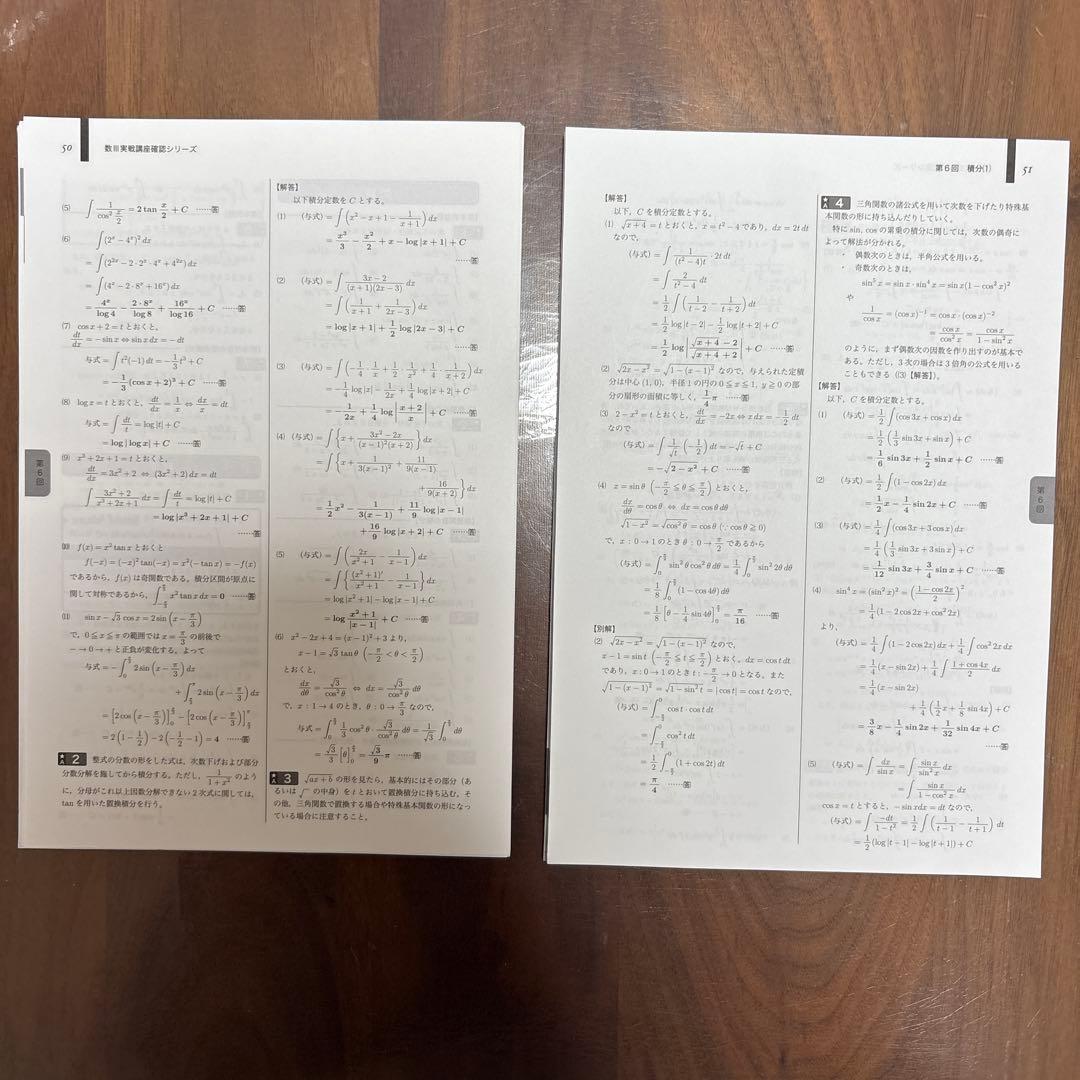 50 数Ⅲ実戦講座確認シリーズ
(5) ∫ 1/cos² x/2 = 2tan x/2 + C ……答
(6) ∫(2ˣ − 4ˣ)² dx
= ∫(2²ˣ − 2·2ˣ·4ˣ + 4²ˣ) dx
= ∫(4ˣ − 2·8ˣ + 16ˣ) dx
= 4ˣ/log4 − 2·8ˣ/log8 + 16ˣ/log16 + C ……答
(7) cos x + 2 = t とおくと,
dt/dx = −sin x ⇔ sin x dx = −dt
与式 = ∫t²(−1) dt = −1/3 t³ + C
= −1/3 (cos x + 2)³ + C ……答
(8) log x = t とおくと, dt/dx = 1/x ⇔ dx/x = dt
与式 = ∫ dt/t = log|t| + C
= log|log x| + C ……答
(9) x³ + 2x + 1 = t とおくと,
dt/dx = 3x² + 2 ⇔ (3x² + 2) dx = dt
∫ (3x² + 2)/(x³ + 2x + 1) dx = ∫ dt/t = log|t| + C
= log|x³ + 2x + 1| + C
……答
(10) f(x) = x² tan x とおくと
f(−x) = (−x)² tan(−x) = x²(−tan x) = −f(x)
であるから, f(x) は奇関数である。積分区間が原点に
関して対称であるから, ∫ x² tan x dx = 0 ……答
(11) sin x − √3 cos x = 2 sin(x − π/3)
で, 0 ≦ x ≦ π の範囲では x = π/3 の前後で
− → 0 → + と正負が変化する。よって
与式 = −∫₀^(π/3) 2 sin(x − π/3) dx
+ ∫_(π/3)^π 2 sin(x − π/3) dx
= [2 cos(x − π/3)]₀^(π/3) − [2 cos(x − π/3)]_(π/3)^π
= 2(1 − 1/2) − 2(−1/2 − 1) = 4 ……答
★A 2 整式の分数の形をした式は, 次数下げおよび部分
分数分解を施してから積分する。ただし, 1/(1 + x²) のよう
に, 分母がこれ以上因数分解できない 2 次式に関しては,
tan を用いた置換積分を行う。
【解答】
以下積分定数を C とする。
(1) (与式) = ∫(x² − x + 1 − 1/(x + 1)) dx
= x³/3 − x²/2 + x − log|x + 1| + C
……答
(2) (与式) = ∫ (3x − 2)/((x + 1)(2x − 3)) dx
= ∫(1/(x + 1) + 1/(2x − 3)) dx
= log|x + 1| + 1/2 log|2x − 3| + C
……答
(3) (与式) = ∫(−1/4 · 1/x + 1/2 · 1/x² + 1/4 · 1/(x + 2)) dx
= −1/4 log|x| − 1/2x + 1/4 log|x + 2| + C
= −1/2x + 1/4 log|(x + 2)/x| + C ……答
(4) (与式) = ∫{x + (3x² − 2x)/((x − 1)²(x + 2))} dx
= ∫{x + 1/(3(x − 1)²) + 11/(9(x − 1))
+ 16/(9(x + 2))} dx
= 1/2 x² − 1/(3(x − 1)) + 11/9 log|x − 1|
+ 16/9 log|x + 2| + C ……答
(5) (与式) = ∫(2x/(x² + 1) − 1/(x − 1)) dx
= ∫{(x² + 1)′/(x² + 1) − 1/(x − 1)} dx
= log|x² + 1| − log|x − 1| + C
= log (x² + 1)/|x − 1| + C ……答
(6) x² − 2x + 4 = (x − 1)² + 3 より,
x − 1 = √3 tan θ (−π/2 < θ < π/2)
とおくと,
dx/dθ = √3/cos² θ ⇔ dx = √3/cos² θ dθ
で, x : 1 → 4 のとき, θ : 0 → π/3 なので,
与式 = ∫₀^(π/3) 1/3 cos² θ · √3/cos² θ dθ = 1/√3 ∫₀^(π/3) dθ
= √3/3 [θ]₀^(π/3) = √3/9 π ……答
★A 3 √(ax + b) の形を見たら, 基本的にはその部分 (あ
るいは √ の中身) を t とおいて置換積分に持ち込む。そ
の他, 三角関数で置換する場合や特殊基本関数の形になっ
ている場合に注意すること。
第6回
第6回 積分(1) 51
【解答】
以下, C を積分定数とする。
(1) √(x + 4) = t とおくと, x = t² − 4 であり, dx = 2t dt
なので,
(与式) = ∫ 1/((t² − 4)t) · 2t dt
= ∫ 2/(t² − 4) dt
= 1/2 ∫(1/(t − 2) − 1/(t + 2)) dt
= 1/2 log|t − 2| − 1/2 log|t + 2| + C
= 1/2 log|(√(x + 4) − 2)/(√(x + 4) + 2)| + C ……答
(2) √(2x − x²) = √(1 − (x − 1)²) なので, 与えられた定積
分は中心 (1, 0), 半径 1 の円の 0 ≦ x ≦ 1, y ≧ 0 の部
分の扇形の面積に等しく, 1/4 π ……答
(3) 2 − x² = t とおくと, dt/dx = −2x ⇔ x dx = −1/2 dt
なので
(与式) = ∫ 1/√t (−1/2) dt = −√t + C
= −√(2 − x²) + C ……答
(4) x = sin θ (−π/2 ≦ θ ≦ π/2) とおくと,
dx/dθ = cos θ ⇔ dx = cos θ dθ
√(1 − x²) = √(cos² θ) = cos θ (∵ cos θ ≧ 0)
で, x : 0 → 1 のとき θ : 0 → π/2 であるから
(与式) = ∫₀^(π/2) sin² θ cos² θ dθ = 1/4 ∫₀^(π/2) sin² 2θ dθ
= 1/8 ∫₀^(π/2) (1 − cos 4θ) dθ
= 1/8 [θ − 1/4 sin 4θ]₀^(π/2) = π/16 ……答
【別解】
(2) √(2x − x²) = √(1 − (x − 1)²) なので,
x − 1 = sin t (−π/2 ≦ t ≦ π/2) とおく。dx = cos t dt
であり, x : 0 → 1 のとき t : −π/2 → 0 となる。また
√(1 − (x − 1)²) = √(1 − sin² t) = |cos t| = cos t なので,
(与式) = ∫_(−π/2)^0 cos t · cos t dt
= ∫_(−π/2)^0 cos² t dt
= 1/2 ∫_(−π/2)^0 (1 + cos 2t) dt
= π/4 ……答
★A 4 三角関数の諸公式を用いて次数を下げたり特殊基
本関数の形に持ち込んだりしていく。
特に sin, cos の累乗の積分に関しては, 次数の偶奇に
よって解法が分かれる。
・ 偶数次のときは, 半角公式を用いる。
・ 奇数次のときは,
sin⁵ x = sin x · sin⁴ x = sin x(1 − cos² x)²
や
1/cos x = (cos x)⁻¹ = cos x · (cos x)⁻²
= cos x/cos² x = cos x/(1 − sin² x)
のように, まず偶数次の因数を作り出すのが基本で
ある。ただし, 3 次の場合は 3 倍角の公式を用いる
こともできる ((3)【解答】)。
【解答】
以下, C を積分定数とする。
(1) (与式) = 1/2 ∫(cos 3x + cos x) dx
= 1/2 (1/3 sin 3x + sin x) + C
= 1/6 sin 3x + 1/2 sin x + C ……答
(2) (与式) = 1/2 ∫(1 − cos 2x) dx
= 1/2 x − 1/4 sin 2x + C ……答
(3) (与式) = 1/4 ∫(cos 3x + 3 cos x) dx
= 1/4 (1/3 sin 3x + 3 sin x) + C
= 1/12 sin 3x + 3/4 sin x + C
……答
(4) sin⁴ x = (sin² x)² = ((1 − cos 2x)/2)²
= 1/4 (1 − 2 cos 2x + cos² 2x)
より,
(与式) = 1/4 ∫(1 − 2 cos 2x) dx + 1/4 ∫cos² 2x dx
= 1/4 (x − sin 2x) + 1/4 ∫ (1 + cos 4x)/2 dx
= 1/4 (x − sin 2x)
+ 1/4 (1/2 x + 1/8 sin 4x) + C
= 3/8 x − 1/4 sin 2x + 1/32 sin 4x + C
……答
(5) (与式) = ∫ dx/sin x = ∫ sin x/sin² x dx
= ∫ sin x/(1 − cos² x) dx
cos x = t とすると, −sin x dx = dt なので,
(与式) = ∫ −dt/(1 − t²) = 1/2 ∫(1/(t − 1) − 1/(t + 1)) dt
= 1/2 (log|t − 1| − log|t + 1|) + C
第6回